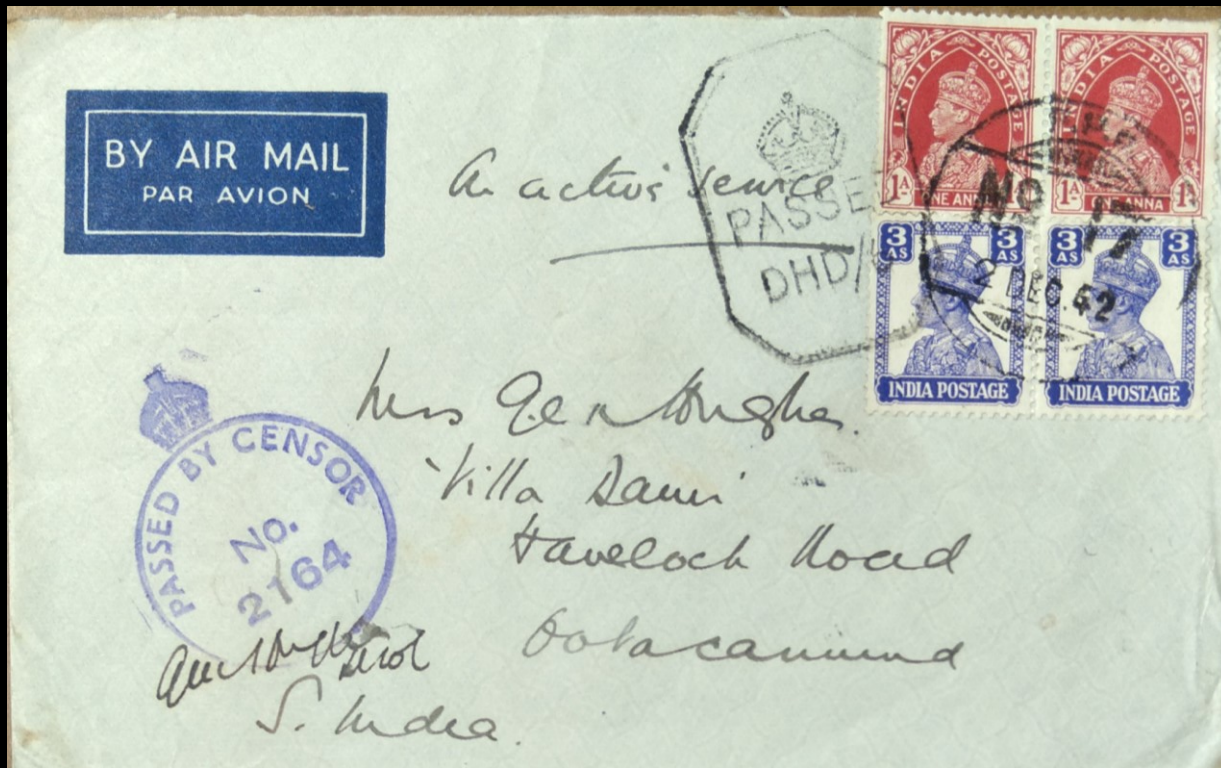 BY AIR MAIL
PAR AVION
On active service
PASSE
DHD/
INDIA POSTAGE
1A 1A
ONE ANNA
INDIA POSTAGE
1A 1A
ONE ANNA
3 AS 3 AS
INDIA POSTAGE
3 AS 3 AS
INDIA POSTAGE
No 17
2 DEC. 42
Mrs G.E.R Hughes.
Villa
Havelock Road
Ootacamund
S. India.
PASSED BY CENSOR
No.
2164